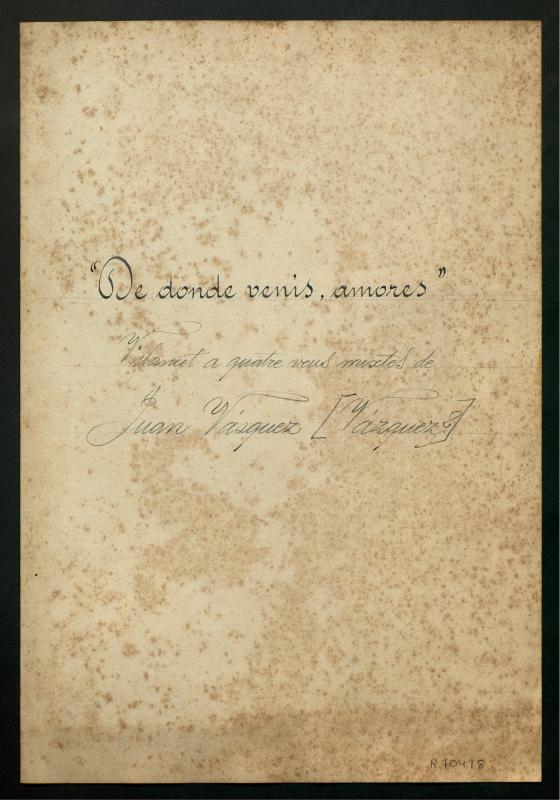 "De donde venis, amores"
Vilancet a quatre veus mixtes de
Juan Vásquez [Vázquez?]
R.10418